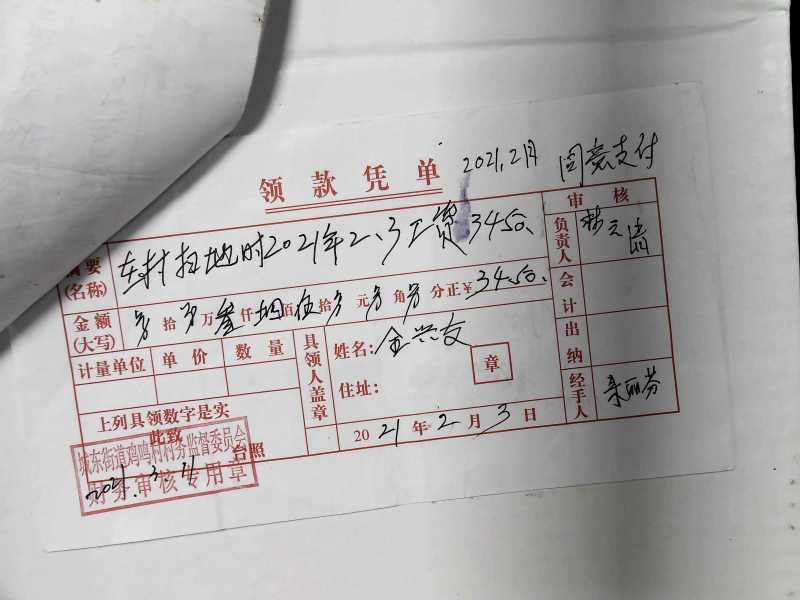 领款凭单 2021.2月 同意支付
摘要
(名称)
东村扫地时2021年2、3工资3450、
审核
负责人
金额
(大写)
拾万叁仟肆佰伍拾元角分正¥3450、
会计
计量单位 单价 数量
具领人盖章
姓名:金兴友
章
住址:
出纳
上列具领数字是实
此致
台照
2021年2月3日
经手人
城东街道鸡鸣村村务监督委员会
2021.3.11
财务审核专用章